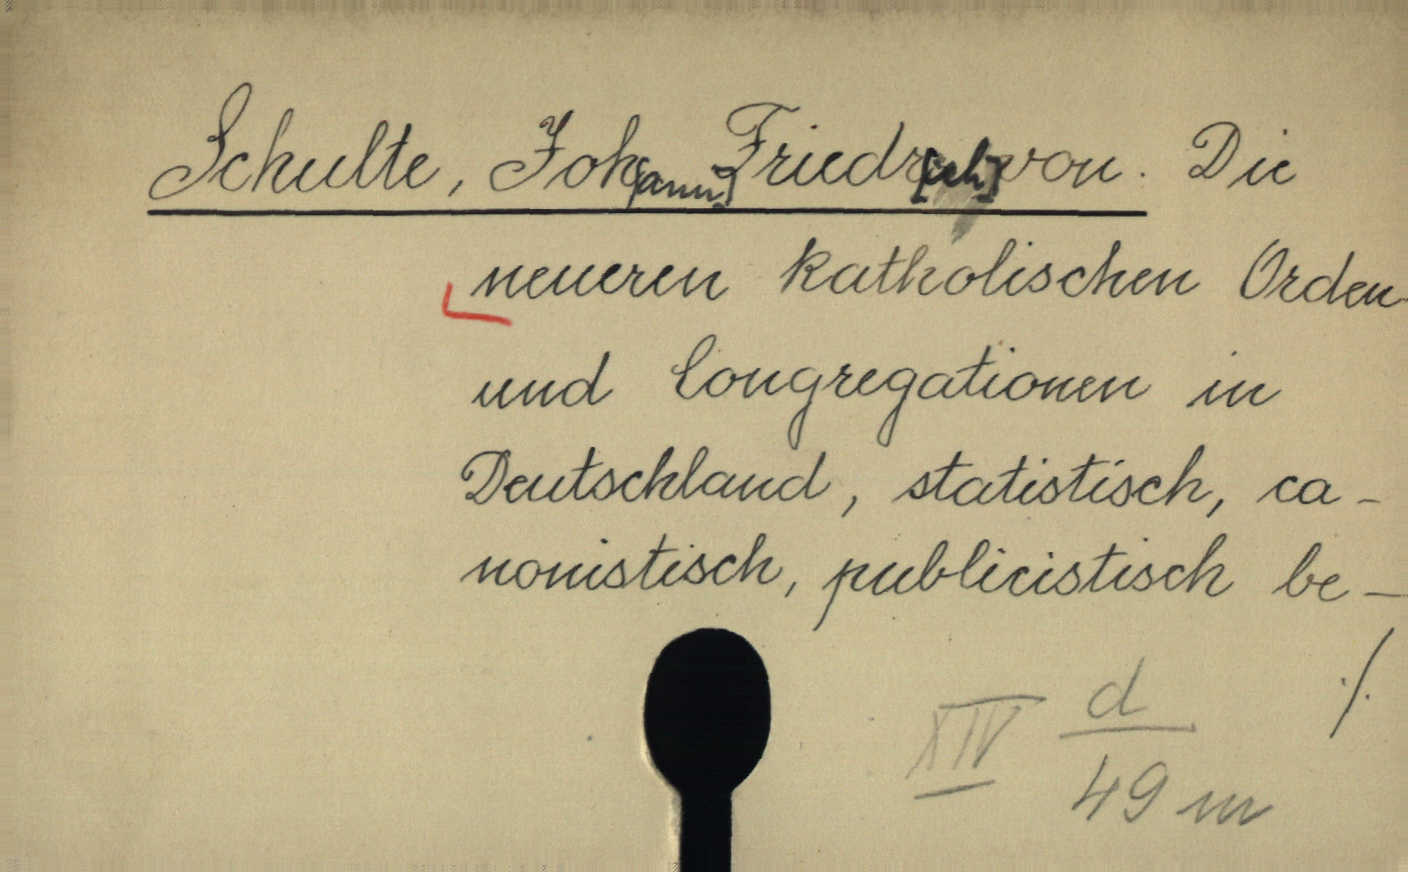 Schulte, Joh[ann] Friedr[ich] von. Die
neueren katholischen Orden-
und Congregationen in
Deutschland, statistisch, ca-
nonistisch, publicistisch be-
./.
XIV d/49 m